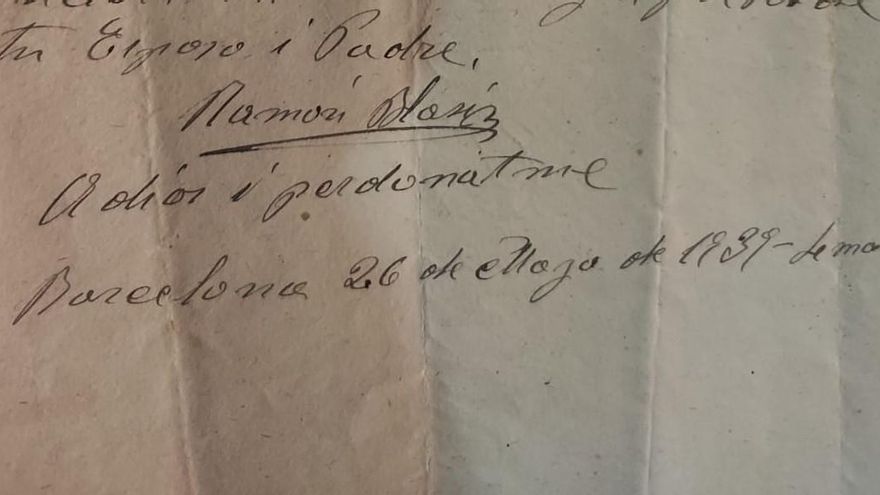 tu Esposo i Padre,
Ramón Blasi
Adiós i perdonatme
Barcelona 26 de Mayo de 1939-